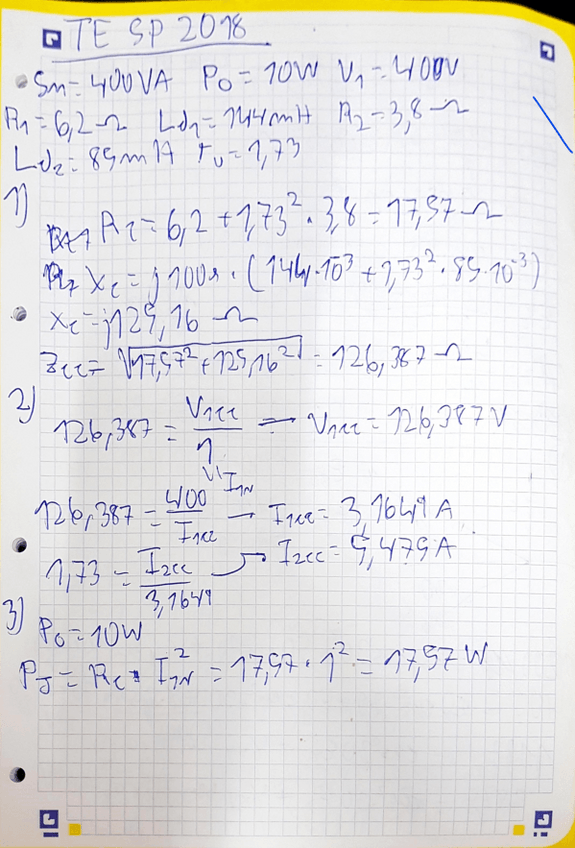 TE SP 2018
Sn = 400VA P0 = 10W V1 = 400V
R1 = 6,2 Ω Ld1 = 144mH R2 = 3,8 Ω
Ld2 = 85mH ru = 1,73
1)
Rc = 6,2 + 1,73² · 3,8 = 17,57 Ω
Xc = j100π · (144·10³ + 1,73² · 85·10⁻³)
Xc = j125,16 Ω
Zcc = √17,57² + 125,16² = 126,387 Ω
2)
126,387 = V1cc / 1 → V1cc = 126,387 V
I1N
126,387 = 400 / I1cc → I1cc = 3,1649 A
1,73 = I2cc / 3,1649 → I2cc = 5,475 A
3)
P0 = 10W
PJ = Rc · I1N² = 17,57 · 1² = 17,57 W